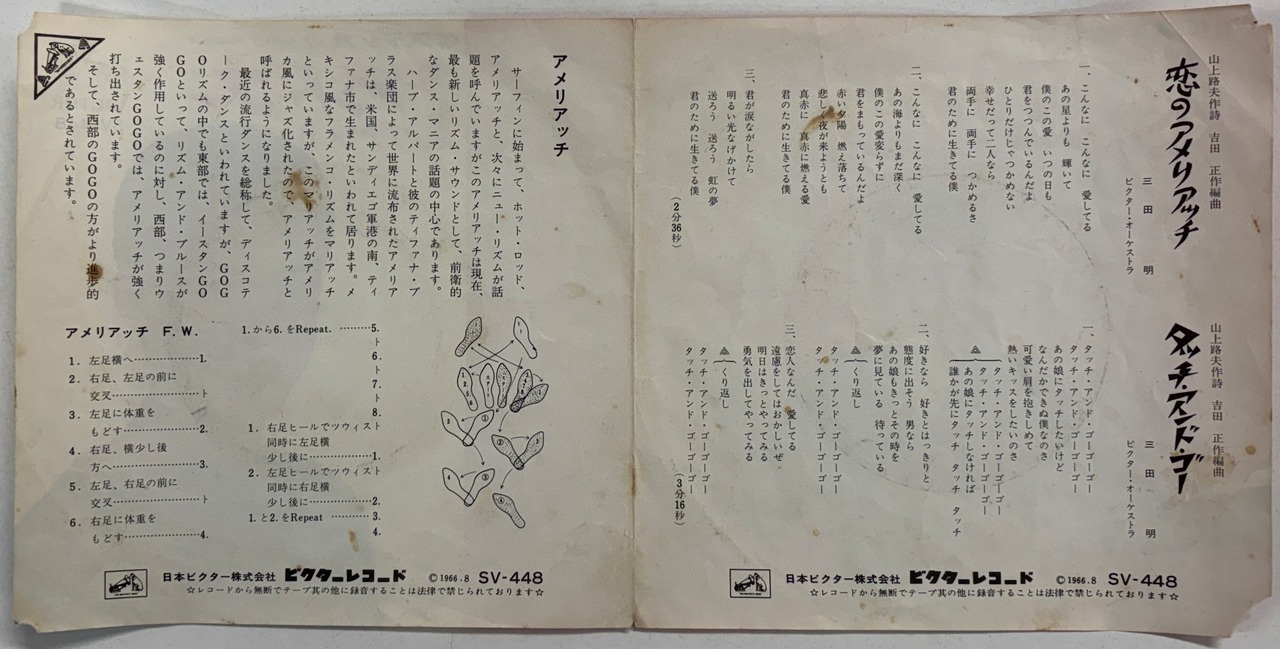 山上路夫作詩　吉田　正作編曲
恋のアメリアッチ
三田　明
ビクター・オーケストラ
一、こんなに　こんなに　愛してる
あの星よりも　輝いて
僕のこの愛　いつの日も
君をつつんでいるんだよ
ひとりだけじゃつかめない
幸せだって二人なら
両手に　両手に　つかめるさ
君のために生きてる僕
二、こんなに　こんなに　愛してる
あの海よりもまだ深く
僕のこの愛変らずに
君をまもっているんだよ
赤い夕陽　燃え落ちて
悲しく夜が来ようとも
真赤に　真赤に燃える愛
君のために生きてる僕
三、君が涙ながしたら
明るい光なげかけて
送ろう　送ろう　虹の夢
君のために生きてる僕
（2分36秒）
山上路夫作詩　吉田　正作編曲
タッチ・アンド・ゴー
三田　明
ビクター・オーケストラ
一、タッチ・アンド・ゴーゴーゴー
タッチ・アンド・ゴーゴーゴー
あの娘にタッチしたいけど
なんだかできぬ僕なのさ
可愛い肩を抱きしめて
熱いキッスをしたいのさ
タッチ・アンド・ゴーゴーゴー
タッチ・アンド・ゴーゴーゴー
あの娘にタッチしなければ
誰かが先にタッチ　タッチ　タッチ
二、好きなら　好きとはっきりと
態度に出そう　男なら
あの娘もきっとその時を
夢に見ている　待っている
くり返し
タッチ・アンド・ゴーゴーゴー
タッチ・アンド・ゴーゴーゴー
三、恋人なんだ　愛してる
遠慮をしてはおかしいぜ
明日はきっとやってみる
勇気を出してやってみる
くり返し
タッチ・アンド・ゴーゴーゴー
タッチ・アンド・ゴーゴーゴー
（3分16秒）
日本ビクター株式会社　ビクターレコード　©1966.8　SV-448
☆レコードから無断でテープ其の他に録音することは法律で禁じられております☆
アメリアッチ
サーフィンに始まって、ホット・ロッド、
アメリアッチと、次々にニュー・リズムが話
題を呼んでいますがこのアメリアッチは現在、
最も新しいリズム・サウンドとして、前衛的
なダンス・マニアの話題の中心であります。
ハーブ・アルパートと彼のティファナ・ブ
ラス楽団によって世界に流布されたアメリア
ッチは、米国、サンディエゴ軍港の南、ティ
ファナ市で生まれたといわれて居ります。メ
キシコ風なフラメンコ・リズムをマリアッチ
といっていますが、このマリアッチがアメリ
カ風にジャズ化されたので、アメリアッチと
呼ばれるようになりました。
最近の流行ダンスを総称して、ディスコテ
ーク・ダンスといわれていますが、GOG
Oリズムの中でも東部では、イースタンGO
GOといって、リズム・アンド・ブルースが
強く作用しているのに対し、西部、つまりウ
ェスタンGOGOでは、アメリアッチが強く
打ち出されています。
そして、西部のGOGOの方がより進歩的
であるとされています。
アメリアッチ　F.W.
1. 左足横へ……………1.
2. 右足、左足の前に
交叉……………ト
3. 左足に体重を
もどす……………2.
4. 右足、横少し後
方へ……………3.
5. 左足、右足の前に
交叉……………ト
6. 右足に体重を
もどす……………4.
1.から6.をRepeat. ………5.
ト
6.
ト
7.
ト
8.
1. 右足ヒールでツウィスト
同時に左足横
少し後に……………1.
2. 左足ヒールでツウィスト
同時に右足横
少し後に……………2.
1.と2.をRepeat …………3.
4.
日本ビクター株式会社　ビクターレコード　©1966.8　SV-448
☆レコードから無断でテープ其の他に録音することは法律で禁じられております☆